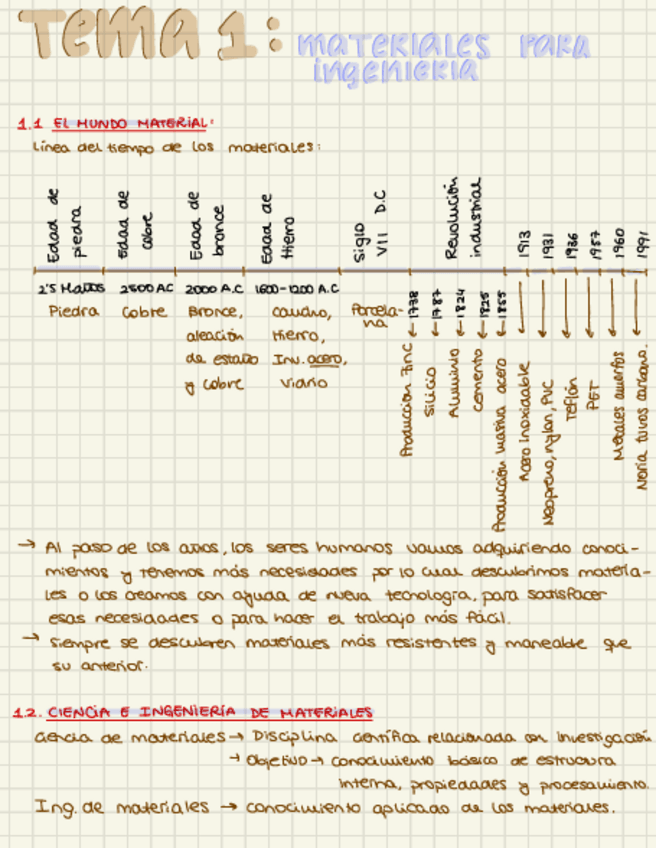 Tema 1: materiales para
ingenieria
1.1 EL MUNDO MATERIAL:
Linea del tiempo de los materiales:
Edad de piedra
Edad de cobre
Edad de bronce
Edad de Hierro
Siglo VII D.C
Revolución industrial
1913
1931
1936
1957
1960
1991
2'5 M años
2500 AC
2000 A.C
1600-1200 A.C
Piedra
Cobre
Bronce,
aleación
de estaño
y cobre
caucho,
Hierro,
Inv. acero,
Vidrio
Porcela-
na
1778
1787
1824
1825
1855
Producción Zinc
Silicio
Aluminio
Cemento
Producción masiva acero
Acero Inoxidable
Neopreno, nylon, PVC
Teflón
PET
Metales amorfos
tubos carbono.
→ Al paso de los años, los seres humanos vamos adquiriendo conoci-
mientos y tenemos más necesidades por lo cual descubrimos materia-
les o los creamos con ayuda de nueva tecnología, para satisfacer
esas necesidades o para hacer el trabajo más fácil.
→ Siempre se descubren materiales más resistentes y maneable que
su anterior.
1.2. CIENCIA E INGENIERÍA DE MATERIALES
Ciencia de materiales → Disciplina científica relacionada con Investigación
→ Objetivo → conocimiento básico de estructura
interna, propiedades y procesamiento.
Ing. de materiales → conocimiento aplicado de los materiales.